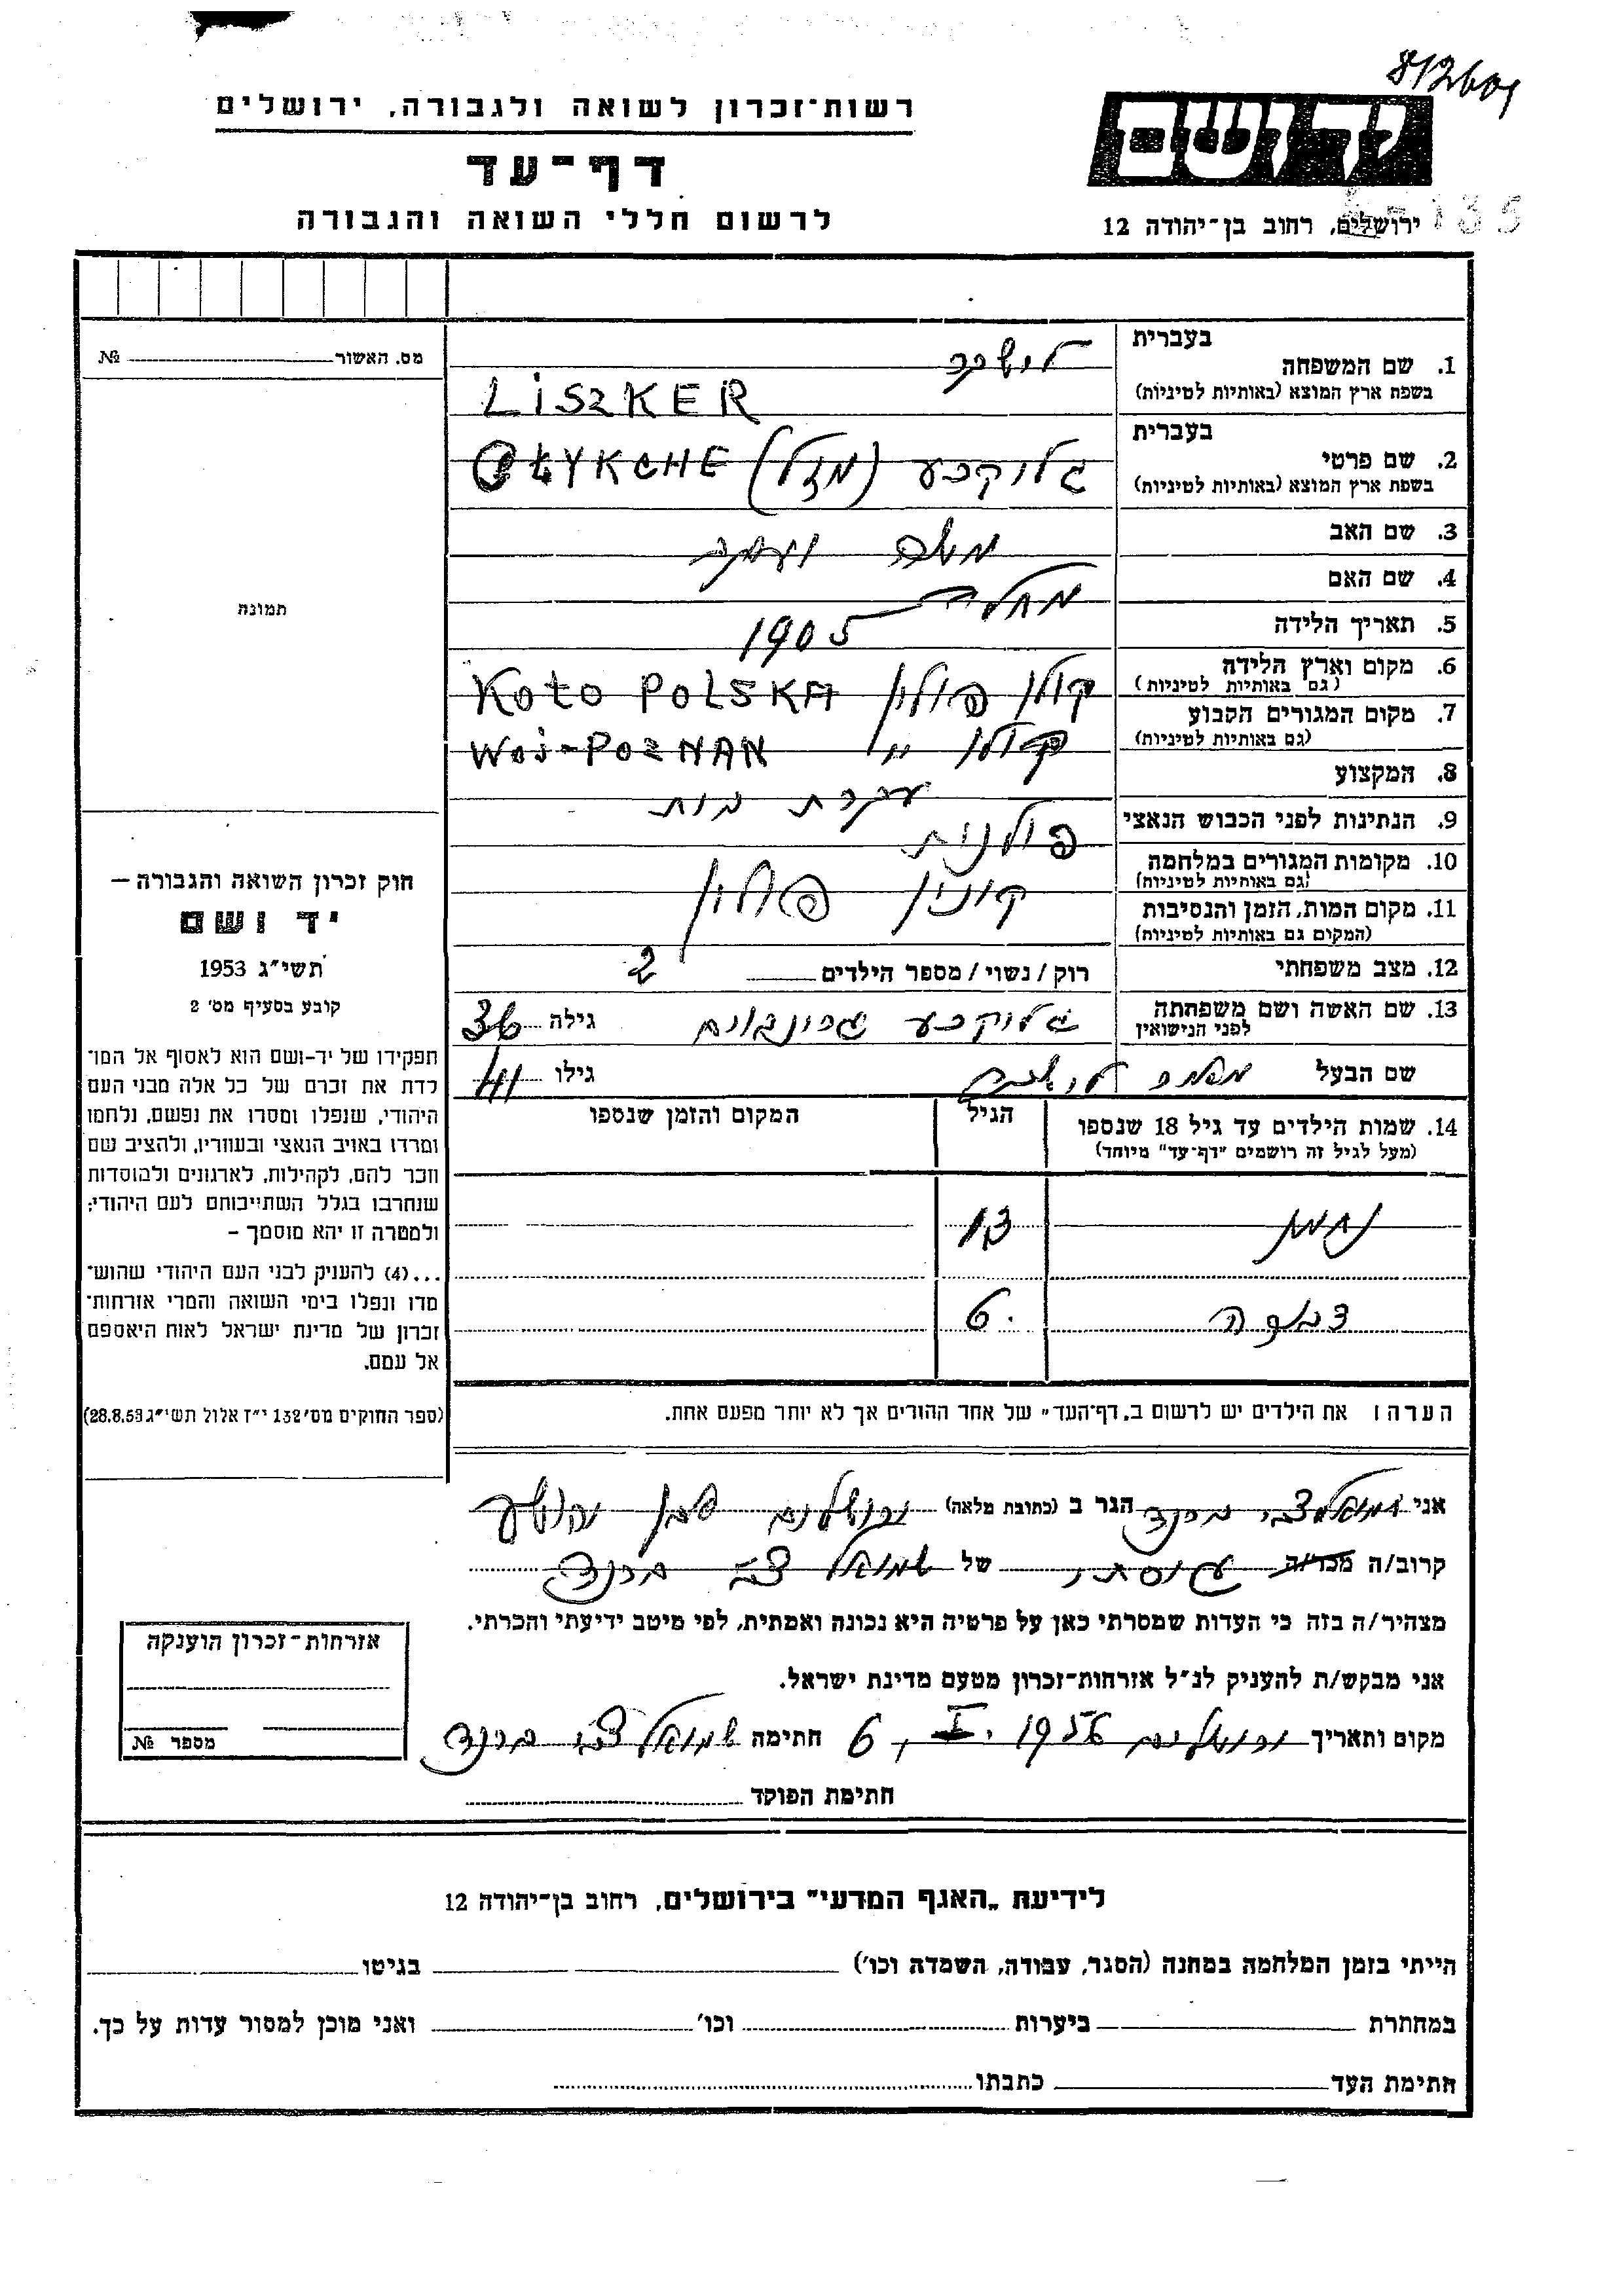 812601
רשות־זכרון לשואה ולגבורה, ירושלים
יד ושם
דף־עד
לרשום חללי השואה והגבורה
ירושלים, רחוב בן־יהודה 12
מס. האשור № 
בעברית
1. שם המשפחה
בשפת ארץ המוצא (באותיות לטיניות)
לישקר
LiSZKER
בעברית
2. שם פרטי
בשפת ארץ המוצא (באותיות לטיניות)
גלוקכע (מזל) GŁYKCHE
3. שם האב
משה
4. שם האם
5. תאריך הלידה
1905
6. מקום וארץ הלידה
(גם באותיות לטיניות)
קולו פולין KOŁO POLSKA
7. מקום המגורים הקבוע
(גם באותיות לטיניות)
קולו " WOJ-POZNAN
8. המקצוע
עקרת בית
9. הנתינות לפני הכבוש הנאצי
פולנית
10. מקומות המגורים במלחמה
(גם באותיות לטיניות)
קונין פולין
11. מקום המות, הזמן והנסיבות
(המקום גם באותיות לטיניות)
12. מצב משפחתי
רוק / נשוי / מספר הילדים 2
13. שם האשה ושם משפחתה
לפני הנישואין
גלוקכע גרינבוים גילה 36
שם הבעל לישקר גילו 41
14. שמות הילדים עד גיל 18 שנספו
(מעל לגיל זה רושמים "דף־עד" מיוחד)
הגיל
המקום והזמן שנספו
13
6
הערה ו את הילדים יש לרשום ב„דף־העד" של אחד ההורים אך לא יותר מפעם אחת.
תמונה
חוק זכרון השואה והגבורה –
יד ושם
תשי״ג 1953
קובע בסעיף מס' 2
תפקידו של יד-ושם הוא לאסוף אל המו־
לדת את זכרם של כל אלה מבני העם
היהודי, שנפלו ומסרו את נפשם, נלחמו
ומרדו באויב הנאצי ובעוזריו, ולהציב שם
וזכר להם, לקהילות, לארגונים ולמוסדות
שנחרבו בגלל השתייכותם לעם היהודי;
ולמטרה זו יהא מוסמך –
...(4) להעניק לבני העם היהודי שהוש־
מדו ונפלו בימי השואה והמרי אזרחות־
זכרון של מדינת ישראל לאות היאספם
אל עמם.
(ספר החוקים מס' 132 י״ז אלול תשי״ג 28.8.53)
אני שמואל צבי ברנד הגר ב (כתובת מלאה) ירושלים
קרוב/ה מכר/ה גיסתי של שמואל צבי ברנד
מצהיר/ה בזה כי העדות שמסרתי כאן על פרטיה היא נכונה ואמתית, לפי מיטב ידיעתי והכרתי.
אני מבקש/ת להעניק לנ״ל אזרחות־זכרון מטעם מדינת ישראל.
מקום ותאריך ירושלים 1956 חתימה שמואל צבי ברנד
חתימת הפוקד
אזרחות־זכרון הוענקה
מספר №
לידיעת „האגף המדעי" בירושלים, רחוב בן־יהודה 12
הייתי בזמן המלחמה במחנה (הסגר, עבודה, השמדה וכו') בגיטו
במחתרת ביערות וכו' ואני מוכן למסור עדות על כך.
חתימת העד כתבתו